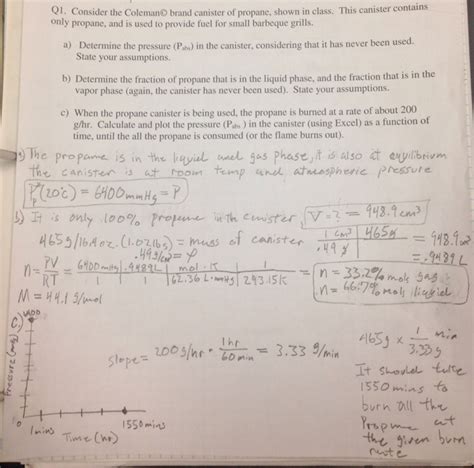 Q1. Consider the Coleman© brand canister of propane, shown in class. This canister contains
only propane, and is used to provide fuel for small barbeque grills.
a) Determine the pressure (Pabs) in the canister, considering that it has never been used.
State your assumptions.
b) Determine the fraction of propane that is in the liquid phase, and the fraction that is in the
vapor phase (again, the canister has never been used). State your assumptions.
c) When the propane canister is being used, the propane is burned at a rate of about 200
g/hr. Calculate and plot the pressure (Pabs) in the canister (using Excel) as a function of
time, until all the propane is consumed (or the flame burns out).
a) The propane is in the liquid and gas phase, it is also at equilibrium
the canister is at room temp and atmospheric pressure
P*p(20°C) = 6400mmHg = P
b) It is only 100% propane in the canister, V=? = 948.9 cm³
465g/16.4oz. (1.02lbs) = mass of canister 1 cm³ | 465g = 948.9cm³
.49g/cm³ = ρ .49 g = .9489L
n = PV/RT = 6400mmHg | .9489L | mol·K | 1 / 1 | 1 | 62.36 L·mmHg | 293.15K = n = 33.2% mols gas
n = 66.7% mols liquid
M = 44.1 g/mol
c) 6400
Pressure (mmHg)
slope = 200g/hr · 1hr/60min = 3.33 g/min
465g × 1 min/3.33g
It should take
1550 mins to
burn all the
Propane at
the given burn
rate
0 1mins Time (hr) 1550mins